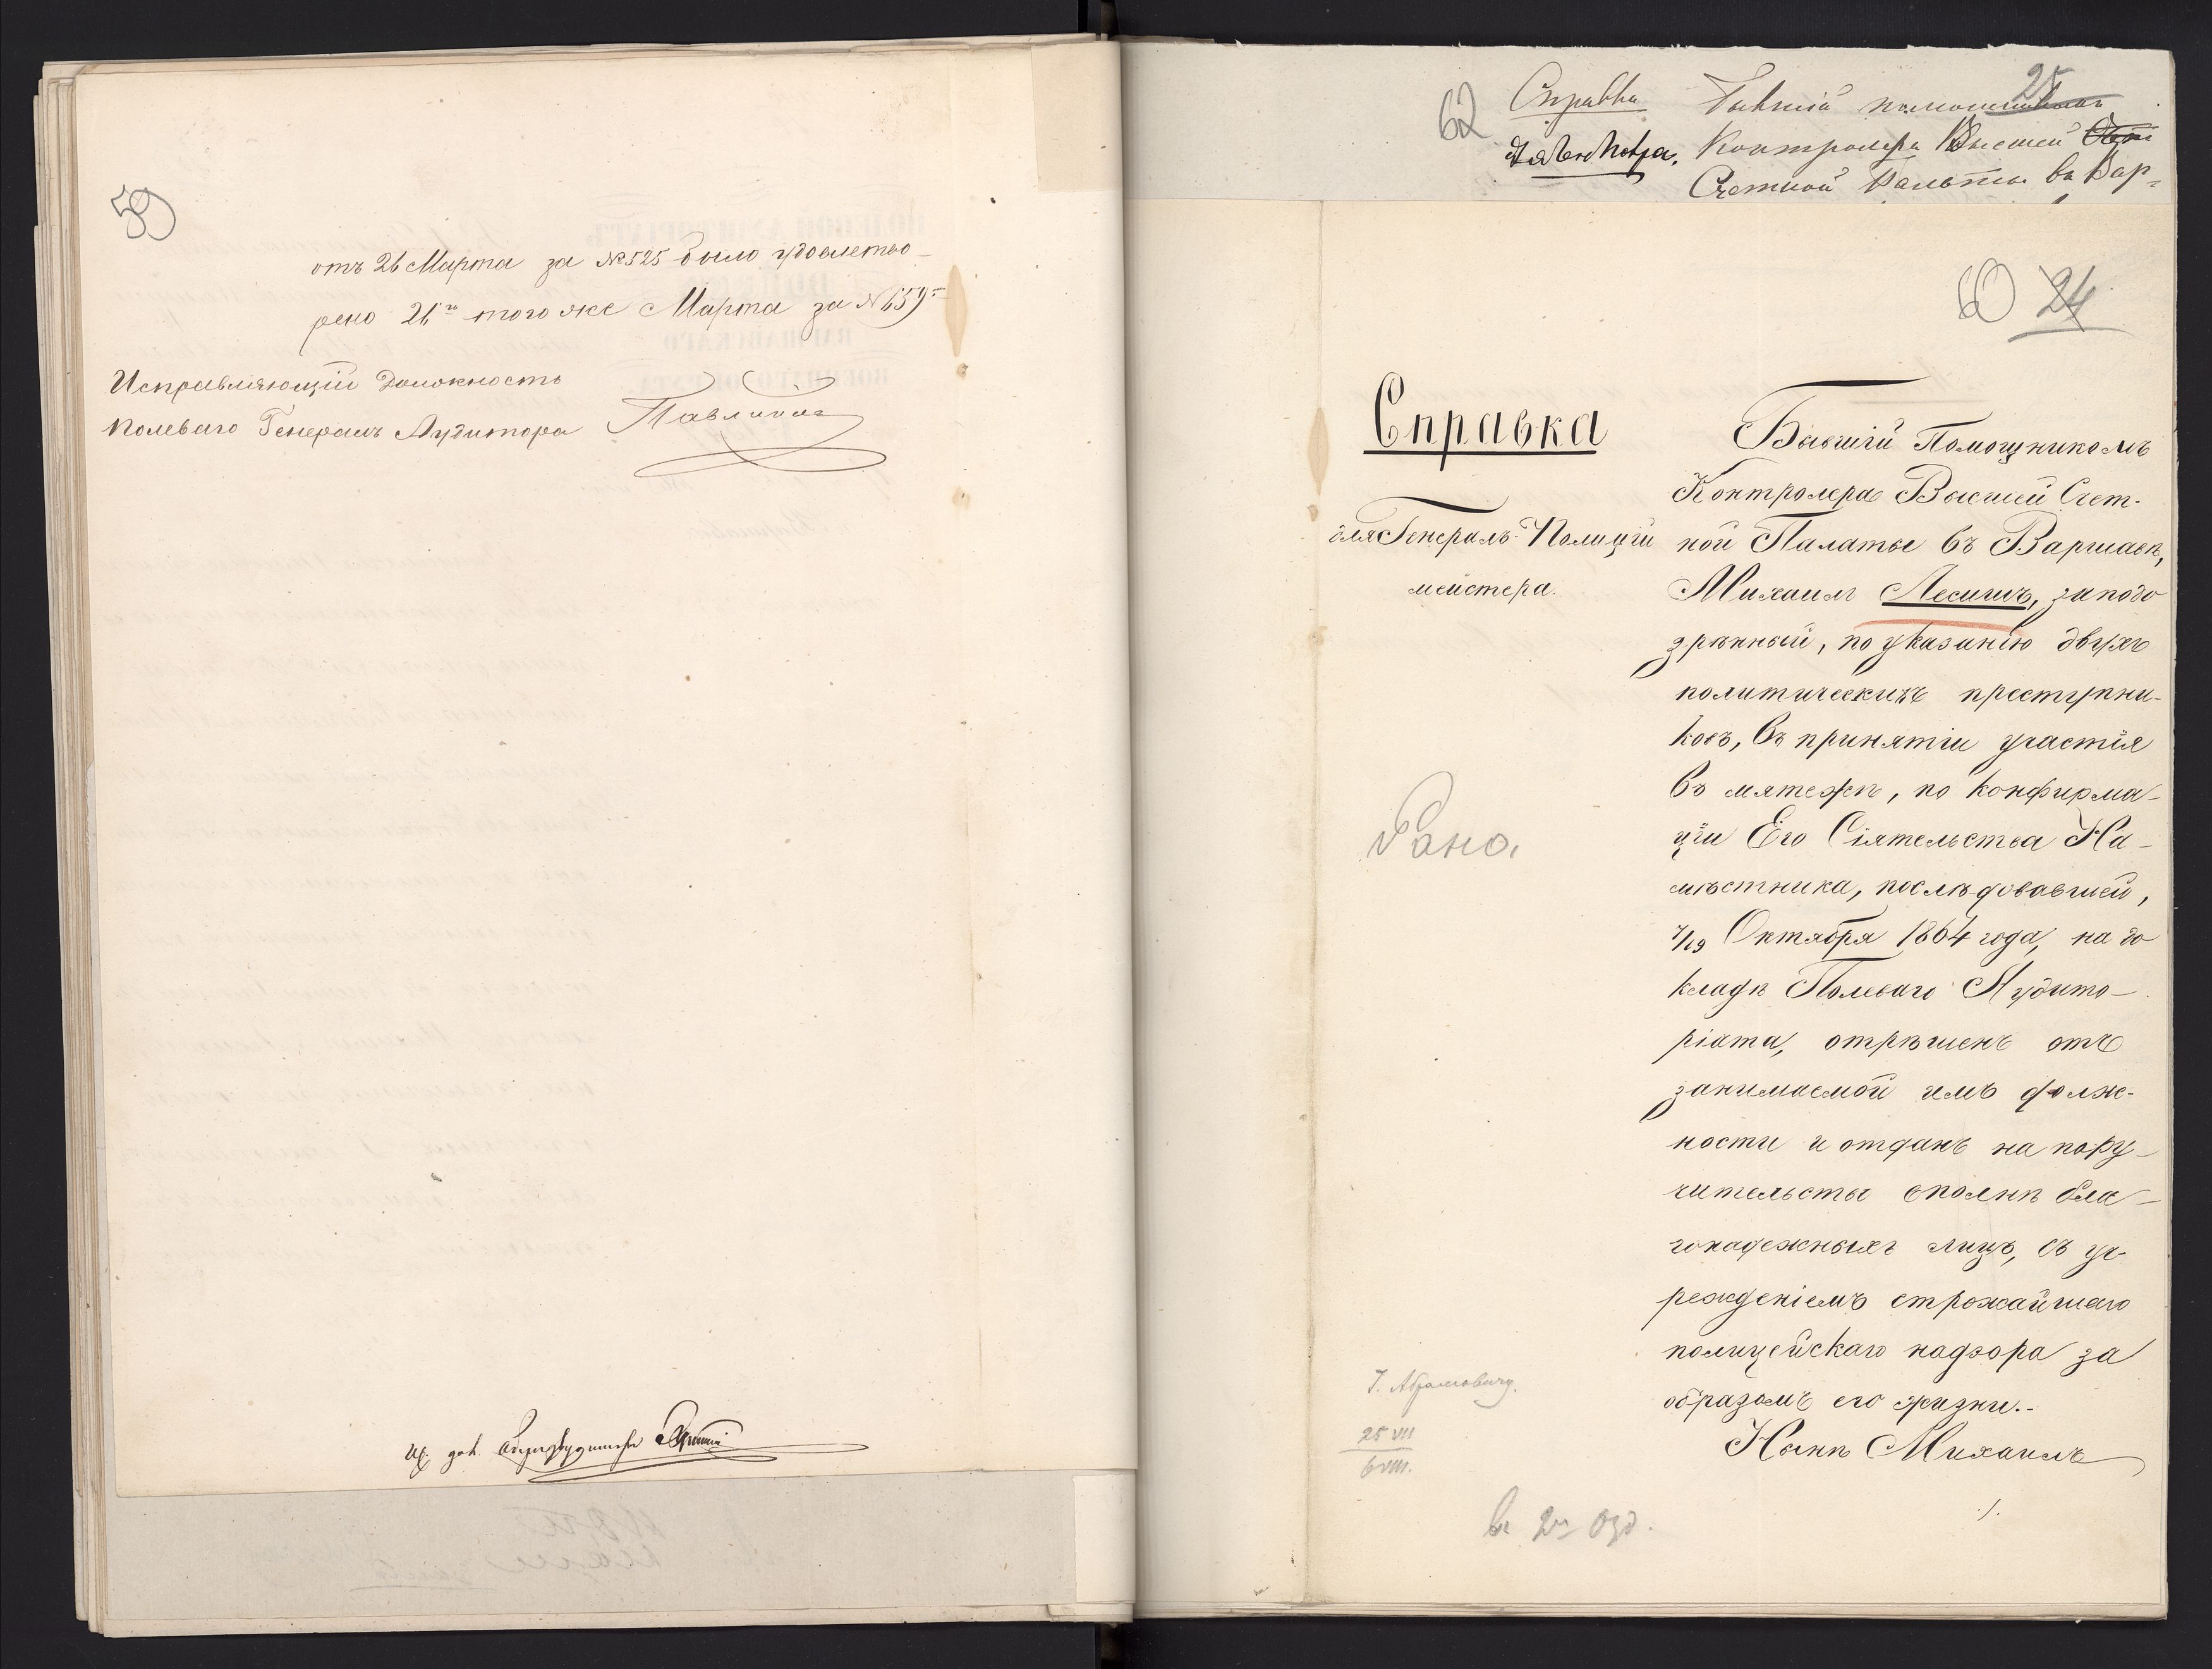 59
отъ 26 Марта за №525 было удовлетво-
рено 26го того же Марта за №659=
Исправляющій Должность
Полеваго Генералъ Аудитора
62
25
Справка
Бывшій помощникомъ
Контролера Высшей
Счетной Палаты въ Вар-
60 24
Справка
для Генералъ-Полиціи
мейстера.
Бывшій Помощникомъ
Контролера Высшей Счет-
ной Палаты въ Варшавѣ,
Михаилъ Лесишъ, заподо
зрѣнный, по указанію двухъ
политическихъ преступни-
ковъ, въ принятіи участія
въ мятежѣ, по конфирма-
ціи Его Сіятельства На-
мѣстника, послѣдовавшей,
7/19 Октября 1864 года, на до
кладѣ Полеваго Аудито-
ріата, отрѣшенъ отъ
занимаемой имъ долж-
ности и отданъ на пору-
чительсты вполнѣ бла-
гонадежныхъ лицъ, съ уч-
режденіемъ строжайшаго
полицейскаго надзора за
образомъ его жизни.-
Нынѣ Михаилъ
./.
Рано.
Г. Абрамовичу.
25 VII
6 VIII.